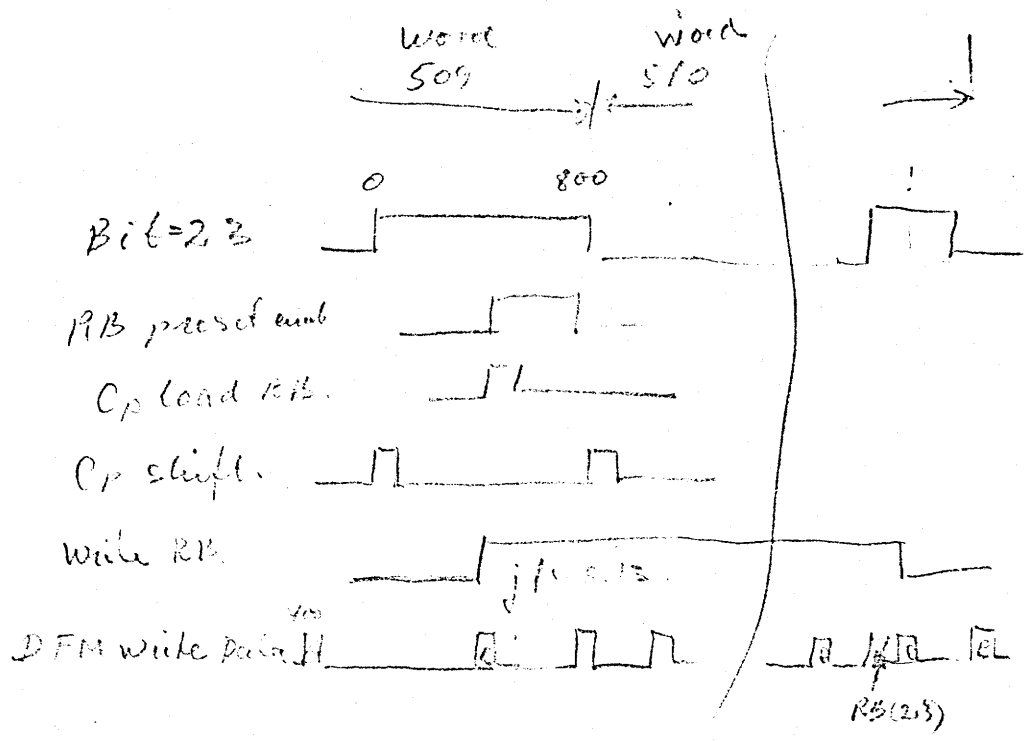 Word word
509 510
0 800
Bit=23
RB preset enab
Cp load RB.
Cp shift.
Write RB
400
DFM write Data
RB(23)